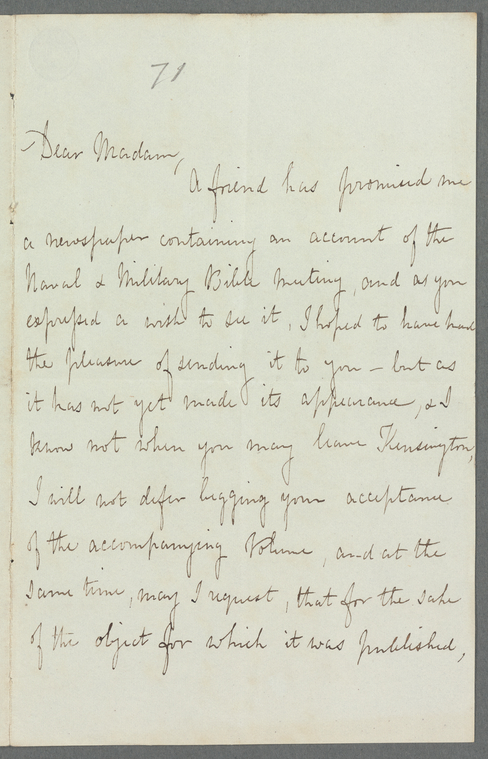 71
Dear Madam,
A friend has promised me
a newspaper containing an account of the
Naval & Military Bible Meeting, and as you
expressed a wish to see it, I hoped to have had
the pleasure of sending it to you – but as
it has not yet made its appearance, & I
know not when you may leave Kensington,
I will not defer begging your acceptance
of the accompanying Volume, and at the
same time, may I request, that for the sake
of the object for which it was published,